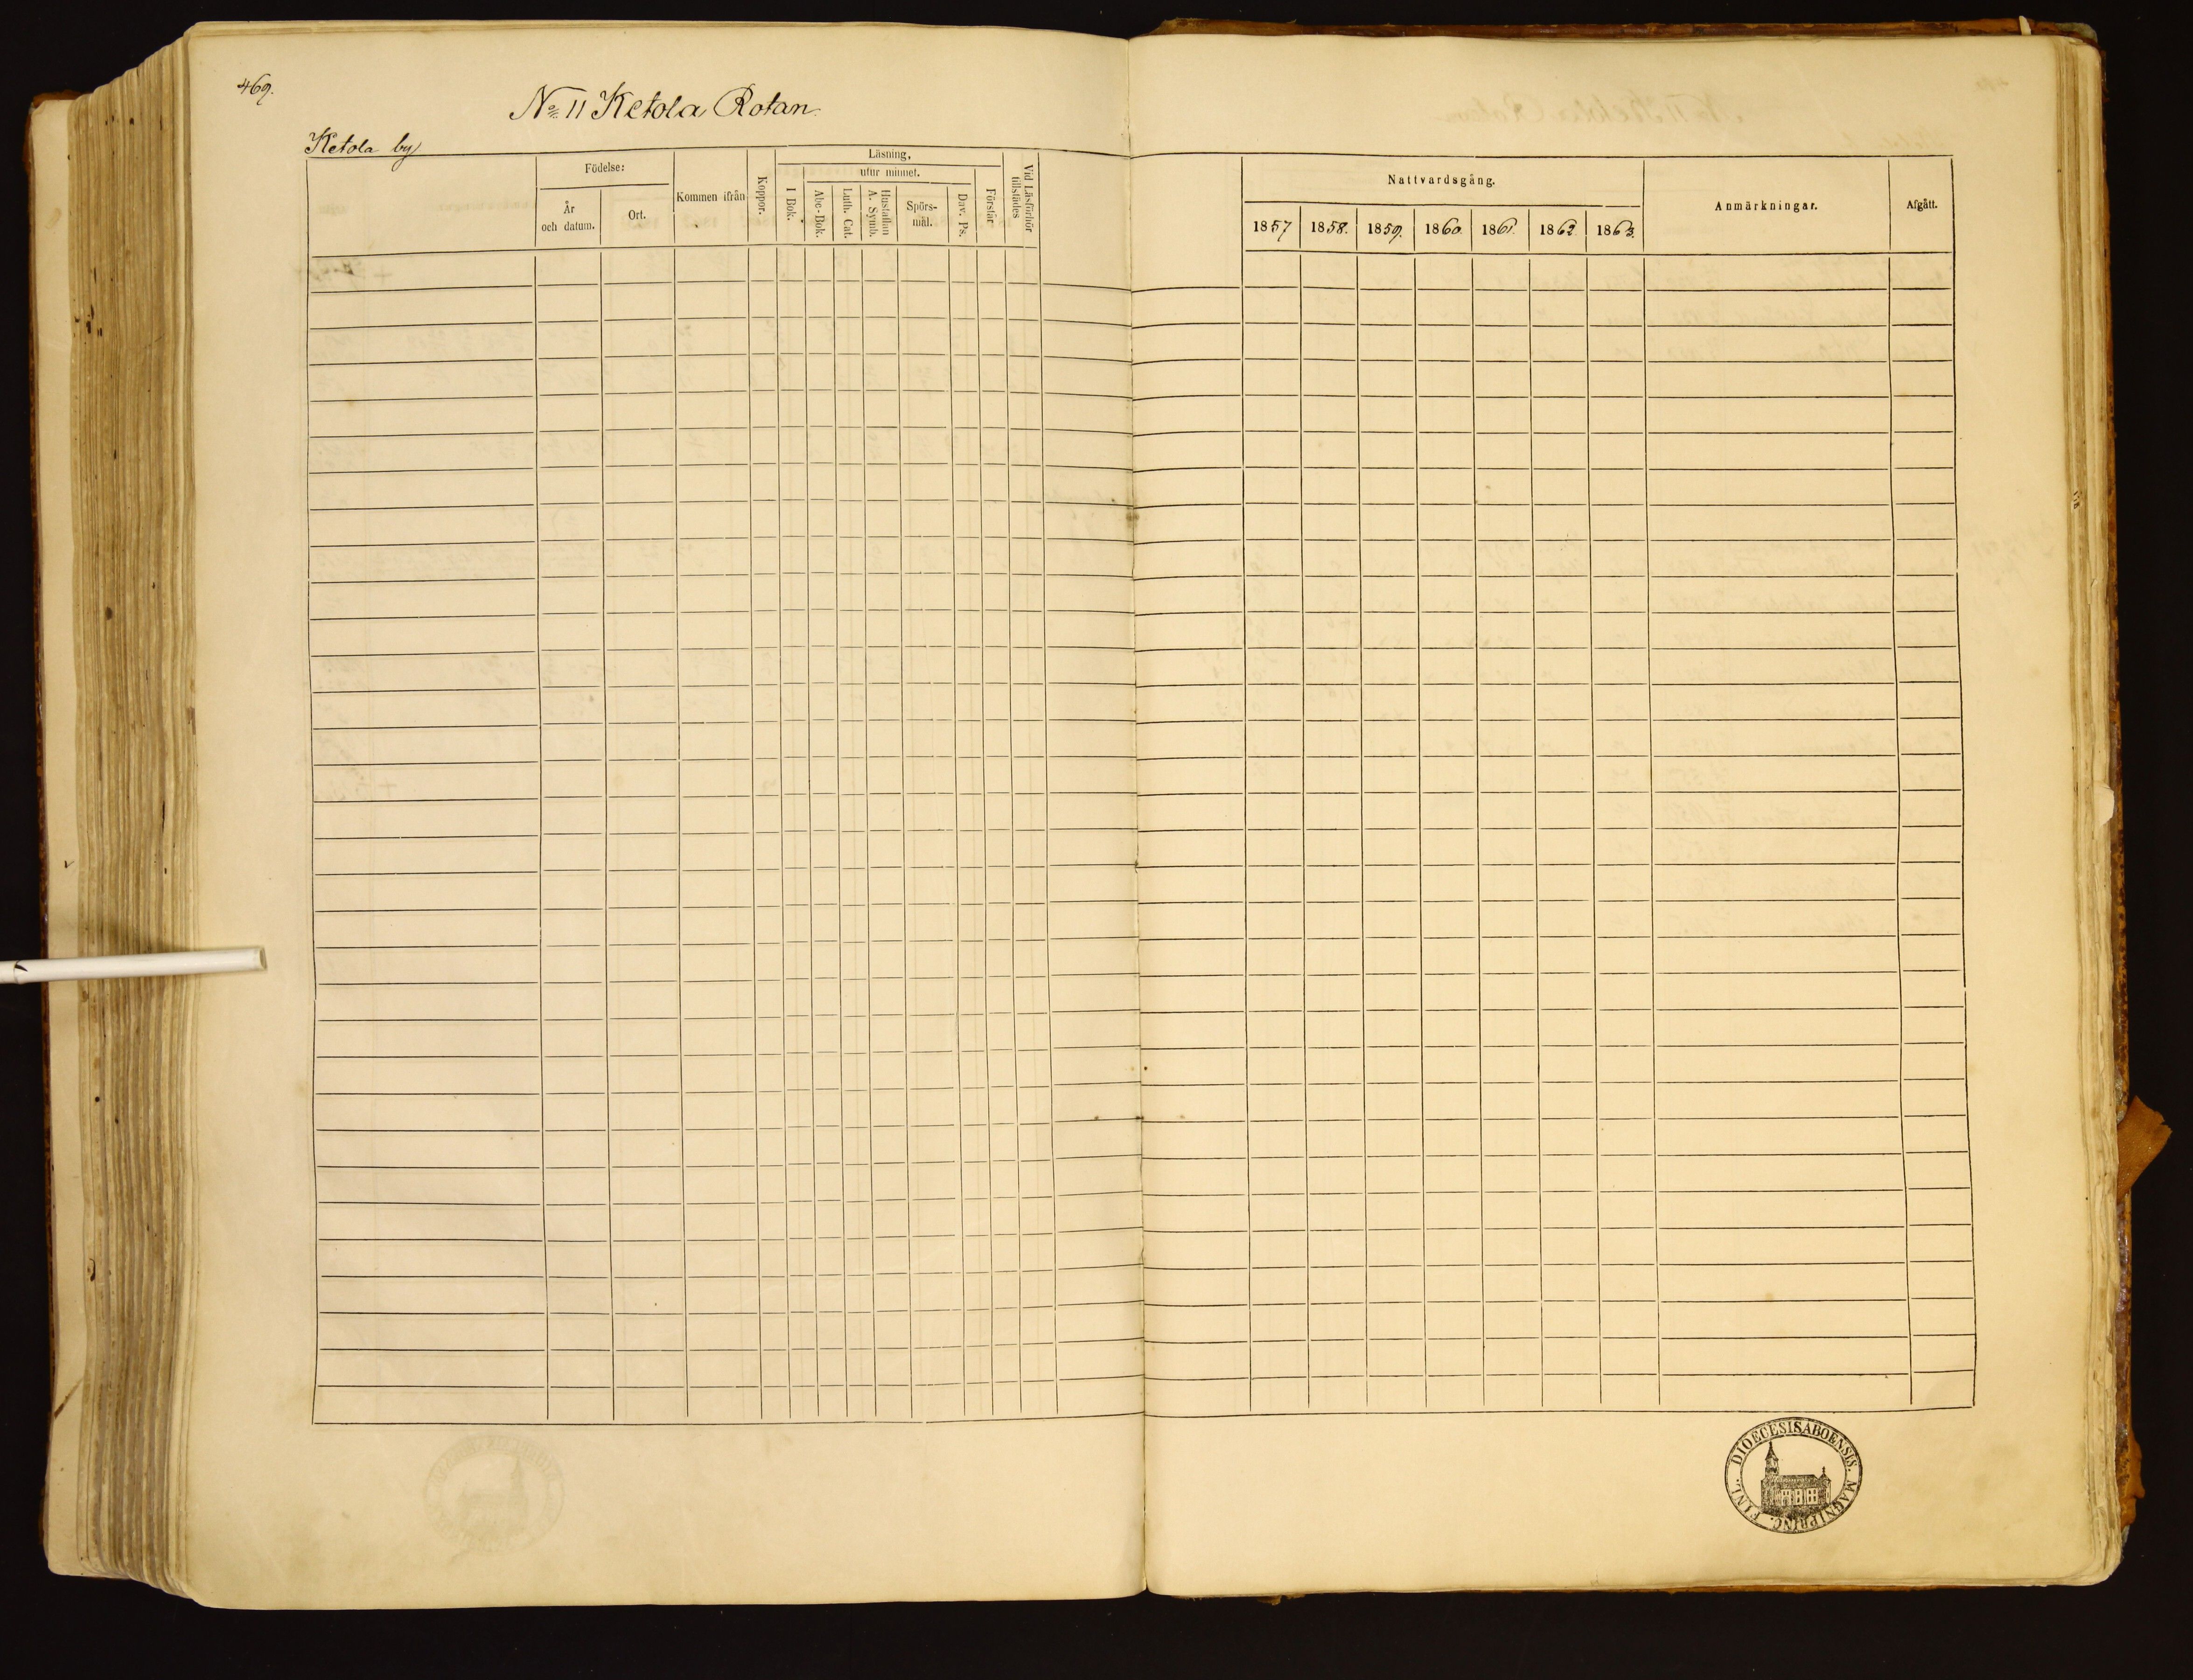 469.
No 11 Ketola Rotan.
Ketola by
Födelse:
År och datum.
Ort.
Kommen ifrån
Koppor.
Läsning,
I Bok.
utur minnet.
Abc-Bok.
Luth. Cat.
Hustaflan A. Symb.
Spörs-mål.
Dav. Ps.
Förstår
Vid Läsförhör tillstädes
Nattvardsgång.
1857 1858. 1859. 1860. 1861. 1862. 1863.
Anmärkningar.
Afgått.
DIOECESIS ABOENSIS. MAGNI PRINC. FINL.